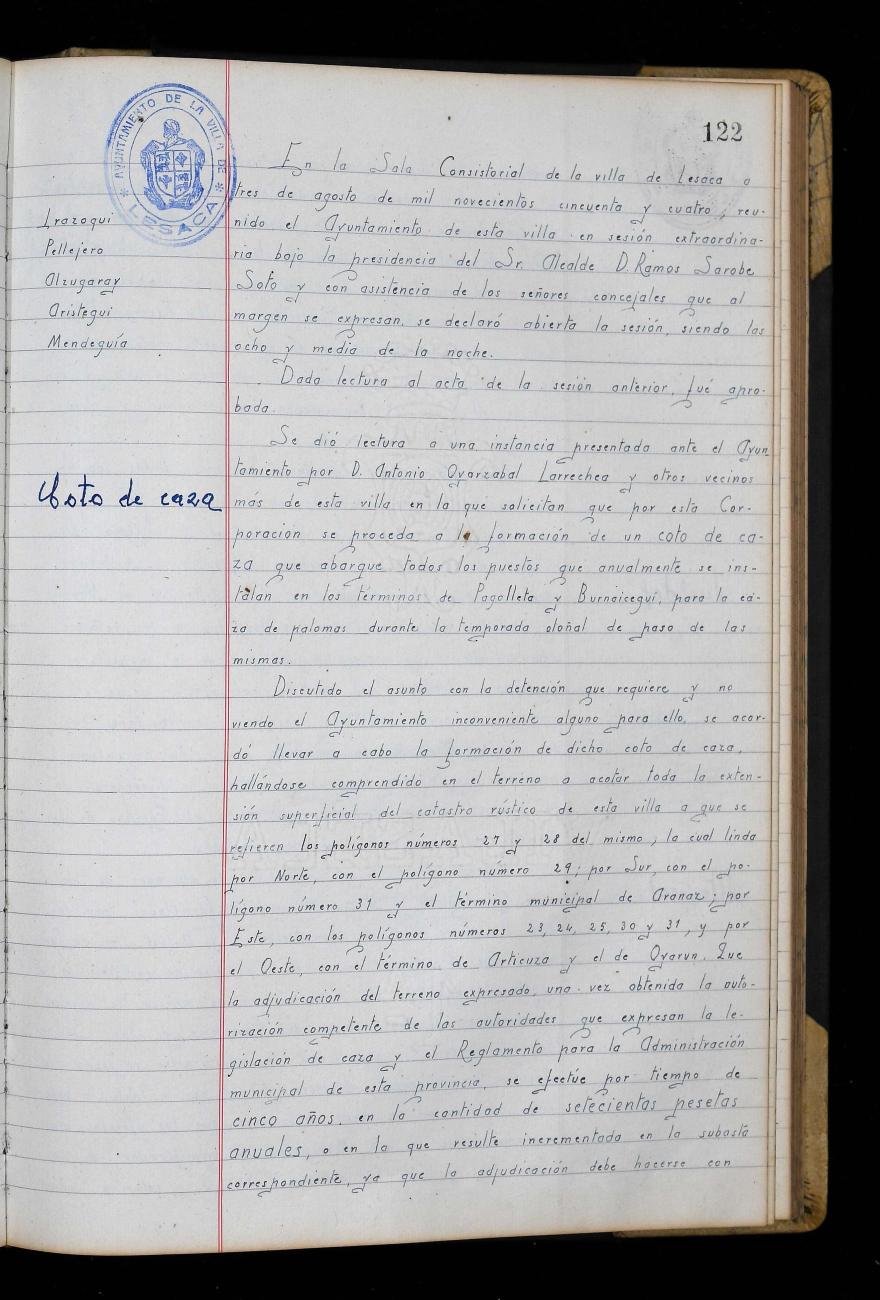 122
AYUNTAMIENTO DE LA VILLA DE
* LESACA *
Irazoqui
Pellejero
Alzugaray
Aristegui
Mendeguía
Coto de caza
En la Sala Consistorial de la villa de Lesaca a
tres de agosto de mil novecientos cincuenta y cuatro, reu-
nido el Ayuntamiento de esta villa en sesión extraordina-
ria bajo la presidencia del Sr. Alcalde D. Ramos Sarobe
Soto y con asistencia de los señores concejales que al
margen se expresan, se declaró abierta la sesión, siendo las
ocho y media de la noche.
Dada lectura al acta de la sesión anterior, fué apro-
bada.
Se dió lectura a una instancia presentada ante el Ayun
tamiento por D. Antonio Oyarzabal Larrechea y otros vecinos
más de esta villa en la que solicitan que por esta Cor-
poración se proceda a la formación de un coto de ca-
za que abarque todos los puestos que anualmente se ins-
talan en los términos de Pagolleta y Burnaicegui, para la ca-
za de palomas durante la temporada otoñal de paso de las
mismas.
Discutido el asunto con la detención que requiere y no
viendo el Ayuntamiento inconveniente alguno para ello, se acor-
dó llevar a cabo la formación de dicho coto de caza,
hallándose comprendido en el terreno a acotar toda la exten-
sión superficial del catastro rústico de esta villa a que se
refieren los polígonos números 27 y 28 del mismo, la cual linda
por Norte, con el polígono número 29; por Sur, con el po-
lígono número 31 y el término municipal de Aranaz; por
Este, con los polígonos números 23, 24, 25, 30 y 31, y por
el Oeste, con el término de Articuza y el de Oyarun. Que
la adjudicación del terreno expresado, una vez obtenida la auto-
rización competente de las autoridades que expresan la le-
gislación de caza y el Reglamento para la Administración
municipal de esta provincia, se efectúe por tiempo de
cinco años, en la cantidad de setecientas pesetas
anuales, o en la que resulte incrementada en la subasta
correspondiente, ya que la adjudicación debe hacerse con